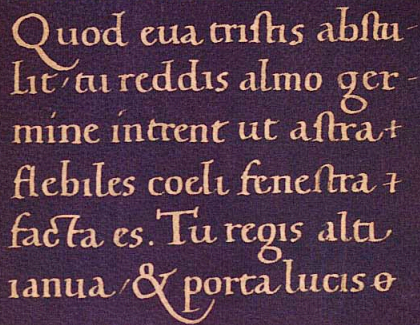 Quod eua tristis abstu-
lit, tu reddis almo ger-
mine intrent ut astra
flebiles coeli fenestra
facta es. Tu regis alti
ianua, & porta lucis